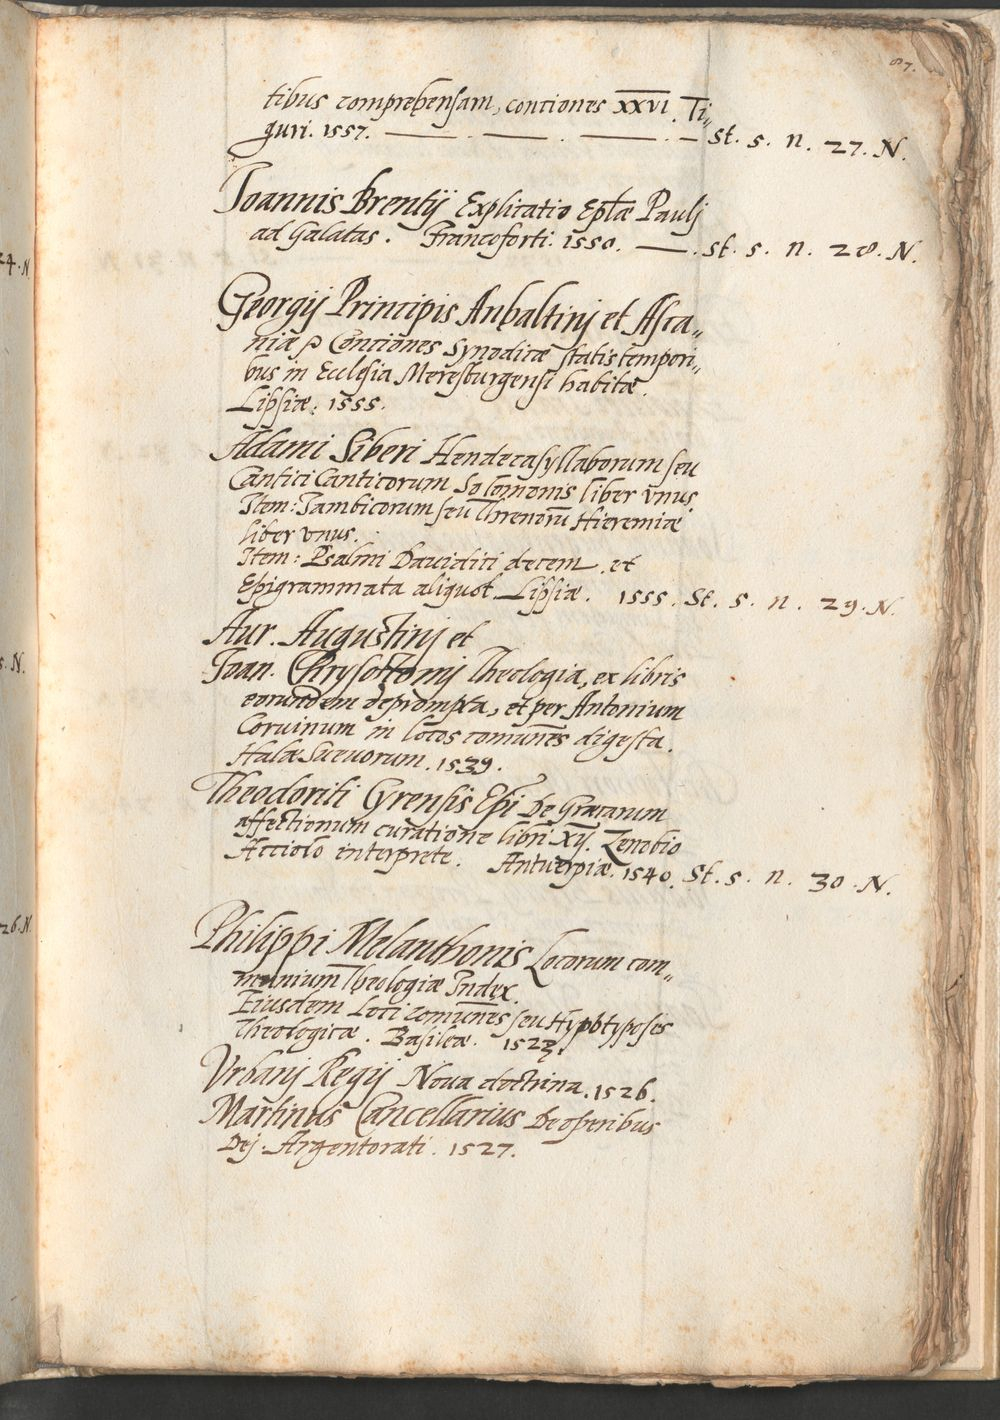 87.
tibus comprehensam, conciones XXVI. Ti„
guri. 1557. — . — . — . — St. s. n. 27. N.
Joannis Brentij Explicatio Eptæ Paulj
ad Galatas. Francoforti. 1550. — . St. s. n. 28. N.
Georgij Principis Anhaltinj et Asca„
niæ Conciones Synodicæ statis tempori„
bus in Ecclesia Mersburgensi habitæ.
Lipsiæ: 1555.
Adami Siberi Hendecasyllaborum seu
Cantici Canticorum Solomonis liber vnus.
Item: Iambicorum seu Threnorū Hieremiæ
liber vnus.
Item: Psalmi Dauidici decem. et
Epigrammata aliquot. Lipsiæ. 1555. St. s. n. 29. N.
Aur. Augustinj et
Joan. Chrysostomj Theologia, ex libris
eorundem deprompta, et per Antonium
Coruinum in locos comunēs digesta.
Halæ Sueuorum. 1539.
Theodoriti Cyrensis Epi De Græcarum
affectionum curatione libri XIJ. Zenobio
Acciolo interprete. Antuerpiæ. 1540. St. s. n. 30. N.
Philippi Melanthonis Locorum com„
munium Theologiæ Index.
Eiusdem Loci comunēs seu Hypotyposes
Theologicæ. Basileæ.
Vrbanj Regij Noua doctrina. 1526.
Martinus Cancellarius De operibus
Dej. Argentorati. 1527.
24. N
5. N.
26. N.